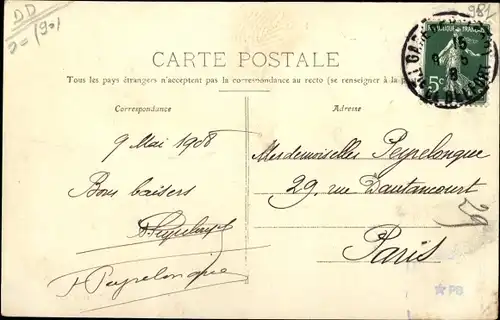 DD
981
CARTE POSTALE
Tous les pays étrangers n'acceptent pas la correspondance au recto (se renseigner à la
Correspondance
Adresse
5c
9 Mai 1908
Bons baisers
Peyrelongue
Mesdemoiselles Peyrelongue
29. rue Dautancourt
Paris
29
PB